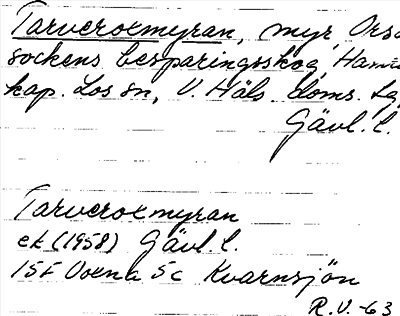 Tarveroxmyran, myr Orsa
sockens besparingsskog, Hamra
kap. Los sn, V. Häls. doms. Lg,
Gävl. l.
Tarveroxmyran
ek (1958) Gävl. l.
15F Voxna 5c Kvarnsjön
R.V. -63